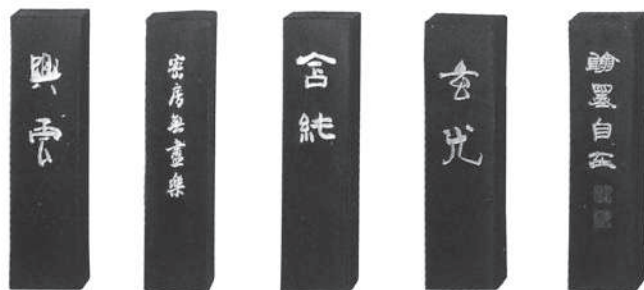 興雲
密房無盡樂
含純
玄光
翰墨自在